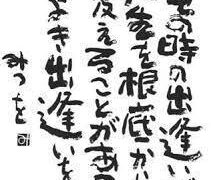 の時の出逢い
生を根底か
変えることがある
よき出逢いを
みつを